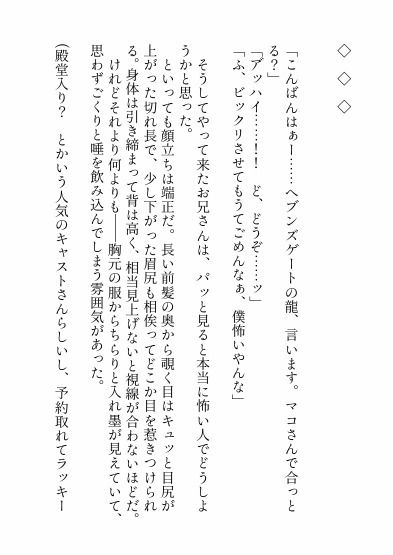 ◇　◇　◇
「こんばんはぁー……ヘブンズゲートの龍、言います。マコさんで合っと
る？」
「アッハイ……！！　ど、どうぞ……ッ」
「ふ、ビックリさせてもうてごめんなぁ、僕怖いやんな」
　そうしてやって来たお兄さんは、パッと見ると本当に怖い人でどうしよ
うかと思った。
　といっても顔立ちは端正だ。長い前髪の奥から覗く目はキュッと目尻が
上がった切れ長で、少し下がった眉尻も相俟ってどこか目を惹きつけられ
る。身体は引き締まって背は高く、相当見上げないと視線が合わないほどだ。
　けれどそれより何よりも――胸元の服からちらりと入れ墨が見えていて、
思わずごくりと唾を飲み込んでしまう雰囲気があった。
（殿堂入り？　とかいう人気のキャストさんらしいし、予約取れてラッキー